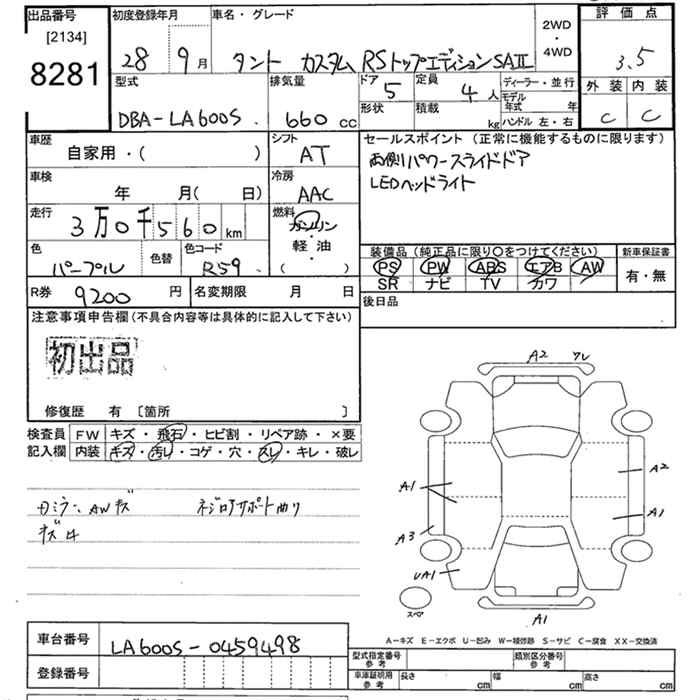 出品番号 初度登録年月 車名・グレード 2WD・4WD 評価点
[2134]
8281
28 9月 タント カスタム RSトップエディションSAⅡ 3.5
型式 排気量 ドア 5 定員 4人 ディーラー・並行 外装 内装
DBA-LA600S 660cc 形状 積載 kg モデル年式 年 C C
ハンドル 左・右
車歴 シフト セールスポイント (正常に機能するものに限ります)
自家用・( ) AT 両側パワースライドドア
車検 冷房 LEDヘッドライト
年 月( 日) AAC
走行 燃料
3万0千560km ガソリン・軽油・( )
色 色替 色コード 装備品(純正品に限り〇をつけてください) 新車保証書
パープル R59 PS PW ABS エアB AW 有・無
SR ナビ TV カワ
R券 9200円 名変期限 月 日 後日品
注意事項申告欄(不具合内容等は具体的に記入して下さい)
初出品
修復歴 有 [箇所 ]
検査員 FW キズ・飛石・ヒビ割・リペア跡・×要
記入欄 内装 キズ・汚レ・コゲ・穴・スレ・キレ・破レ
AWキズ
A2
A2
A1
A1
A3
UA1
A1
スペア
A-キズ E-エクボ U-凹み W-補修跡 S-サビ C-腐食 XX-交換済
車台番号 LA600S-0459498
登録番号
型式指定番号 参考 類別区分番号 参考
車庫証明用 参考 長さ cm 幅 cm 高さ cm